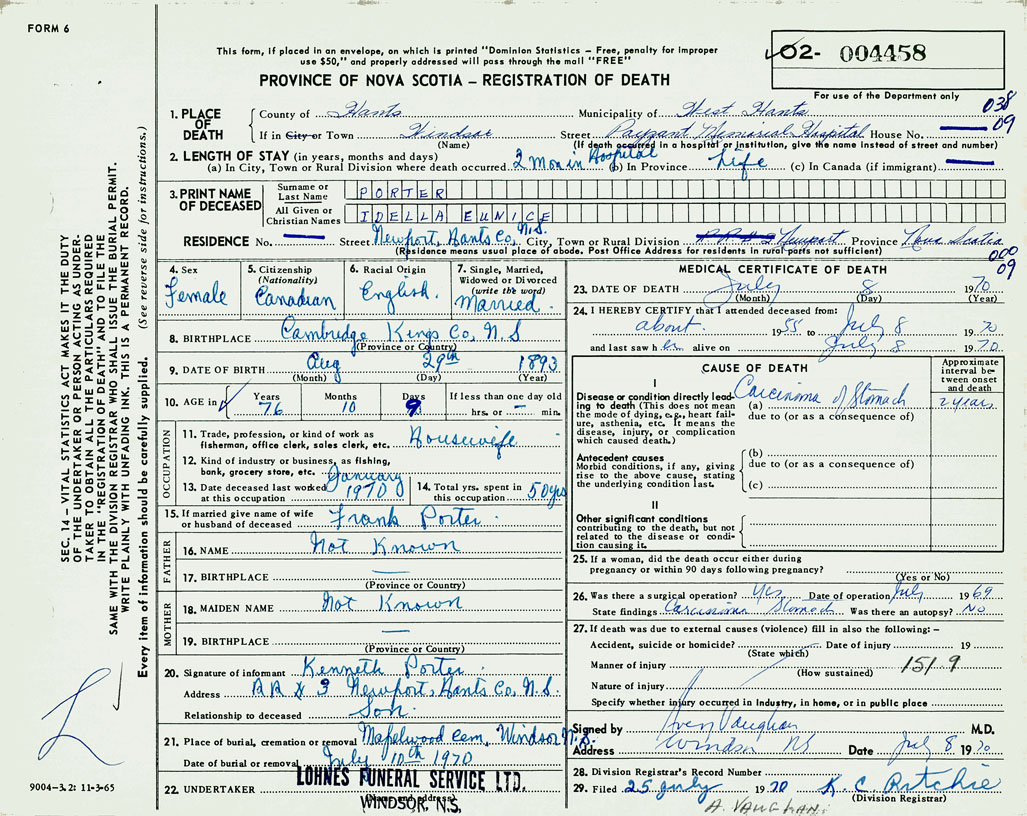 FORM 6
This form, if placed in an envelope, on which is printed "Dominion Statistics – Free, penalty for improper
use $50," and properly addressed will pass through the mail "FREE"
PROVINCE OF NOVA SCOTIA – REGISTRATION OF DEATH
02- 004458
For use of the Department only
038
09
1. PLACE OF DEATH
County of Hants Municipality of West Hants
If in City or Town Windsor Street Payzant Memorial Hospital House No.
(Name) (If death occurred in a hospital or institution, give the name instead of street and number)
2. LENGTH OF STAY (in years, months and days)
(a) In City, Town or Rural Division where death occurred 2 Mon in Hospital (b) In Province Life (c) In Canada (if immigrant)
3. PRINT NAME OF DECEASED
Surname or Last Name PORTER
All Given or Christian Names IDELLA EUNICE
RESIDENCE No. Street Newport, Hants Co, N.S. City, Town or Rural Division Newport Province Nova Scotia
(Residence means usual place of abode. Post Office Address for residents in rural parts not sufficient)
000
09
4. Sex
Female
5. Citizenship
(Nationality)
Canadian
6. Racial Origin
English.
7. Single, Married,
Widowed or Divorced
(write the word)
Married.
8. BIRTHPLACE Cambridge Kings Co, N.S
(Province or Country)
9. DATE OF BIRTH Aug 29th 1893
(Month) (Day) (Year)
10. AGE in Years Months Days If less than one day old
76 10 9 hrs. or – min.
OCCUPATION
11. Trade, profession, or kind of work as
fisherman, office clerk, sales clerk, etc. Housewife
12. Kind of industry or business, as fishing,
bank, grocery store, etc.
13. Date deceased last worked
at this occupation January 1970
14. Total yrs. spent in
this occupation 50 yrs
15. If married give name of wife
or husband of deceased Frank Porter.
FATHER
16. NAME Not Known
17. BIRTHPLACE
(Province or Country)
MOTHER
18. MAIDEN NAME Not Known
19. BIRTHPLACE
(Province or Country)
20. Signature of informant Kenneth Porter.
Address RR # 3 Newport, Hants Co, N.S.
Relationship to deceased Son.
21. Place of burial, cremation or removal Mapelwood Cem, Windsor N.S.
Date of burial or removal July 10th 1970
22. UNDERTAKER LOHNES FUNERAL SERVICE LTD.
WINDSOR, N.S.
MEDICAL CERTIFICATE OF DEATH
23. DATE OF DEATH July 8 1970
(Month) (Day) (Year)
24. I HEREBY CERTIFY that I attended deceased from:
about. 1955 to July 8 1970
and last saw her alive on July 8 1970
CAUSE OF DEATH
Approximate
interval be-
tween onset
and death
I
Disease or condition directly lead-
ing to death (This does not mean
the mode of dying, e.g., heart fail-
ure, asthenia, etc. It means the
disease, injury, or complication
which caused death.)
(a) Carcinoma of Stomach 2 years
due to (or as a consequence of)
Antecedent causes
Morbid conditions, if any, giving
rise to the above cause, stating
the underlying condition last.
(b)
due to (or as a consequence of)
(c)
II
Other significant conditions
contributing to the death, but not
related to the disease or condi-
tion causing it.
25. If a woman, did the death occur either during
pregnancy or within 90 days following pregnancy?
(Yes or No)
26. Was there a surgical operation? Yes Date of operation July 1969
State findings Carcinoma Stomach Was there an autopsy? No
27. If death was due to external causes (violence) fill in also the following: –
Accident, suicide or homicide? Date of injury 19
(State which)
Manner of injury 151 9
(How sustained)
Nature of injury
Specify whether injury occurred in industry, in home, or in public place
Signed by Vaughan M.D.
Address Windsor NS Date July 8 1970
28. Division Registrar's Record Number
29. Filed 25 July 1970 K. C. Ritchie
(Division Registrar)
A. VAUGHAN.
SEC. 14 – VITAL STATISTICS ACT MAKES IT THE DUTY
OF THE UNDERTAKER OR PERSON ACTING AS UNDER-
TAKER TO OBTAIN ALL THE PARTICULARS REQUIRED
IN THE "REGISTRATION OF DEATH" AND TO FILE THE
SAME WITH THE DIVISION REGISTRAR WHO SHALL ISSUE THE BURIAL PERMIT.
WRITE PLAINLY WITH UNFADING INK. THIS IS A PERMANENT RECORD.
Every item of information should be carefully supplied. (See reverse side for instructions.)
9004-3.2: 11-3-65